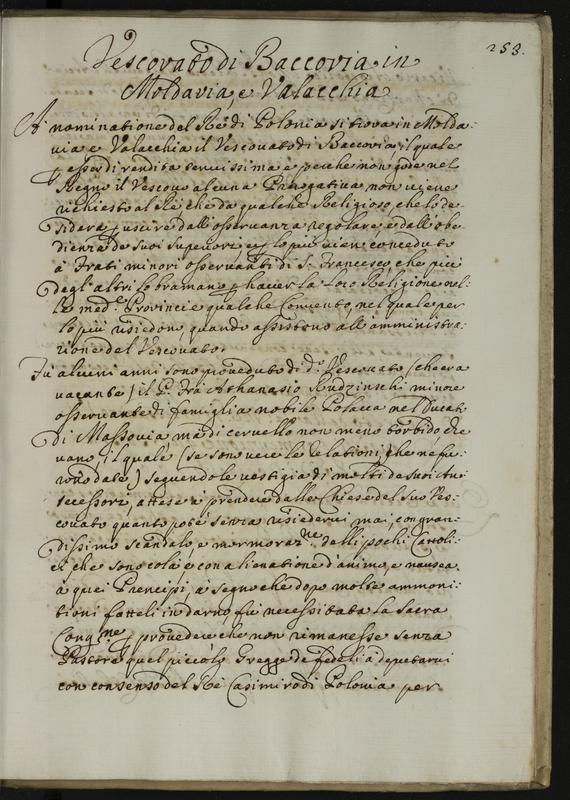 253.
Vescovato di Baccovia in
Moldavia, e Valacchia
A nominatione del Rè di Polonia si trova in Molda-
via e Valacchia il Vescovato di Baccovia, il quale
p esser di rendita tenuissima e perche non gode nel
Regno il Vescovo alcuna Prerogativa, non viene
richiesto al Rè che da qualche Religioso, che de-
sidera p uscire dall'osservanza regolare, e dall'obe-
dienza de suoi superiori, e p lo più vien conceduto
à Frati minori osservanti di S. Francesco, che più
degl'altri lo bramano p haver la loro Religione nel-
le med.e Provincie qualche Convento, nel quale per
lo più risiedono, quando assistono all'amministra-
tione del Vescovato.
Fù alcuni anni sono proveduto di d.o Vescovato (che era
vacante) il P. Frà Athanasio Rudzinschi minore
osservante di famiglia nobile Polacca nel Ducato
di Massovia, mà di cervello non meno torbido che
vano, il quale (se sono vere le relationi, che ne fu-
rono date) seguendo le vestigia di molti de suoi An-
tecessori, attese à prendere dalle Chiese del suo Ves-
covato quanto poté senza risiedervi mai, con gran-
dissimo scandalo, e mormoraz.ne delli pochi Cattoli-
ci che sono colà e con alienatione d'animo, e nausea
à quei Prencipi, à segno che dopo molte ammoni-
tioni fatteli indarno fù necessitata la Sacra
Cong.ne p provedere che non rimanesse senza
Pastore quel piccolo gregge de fedeli à deputarvi
con consenso del Rè Casimiro di Polonia per